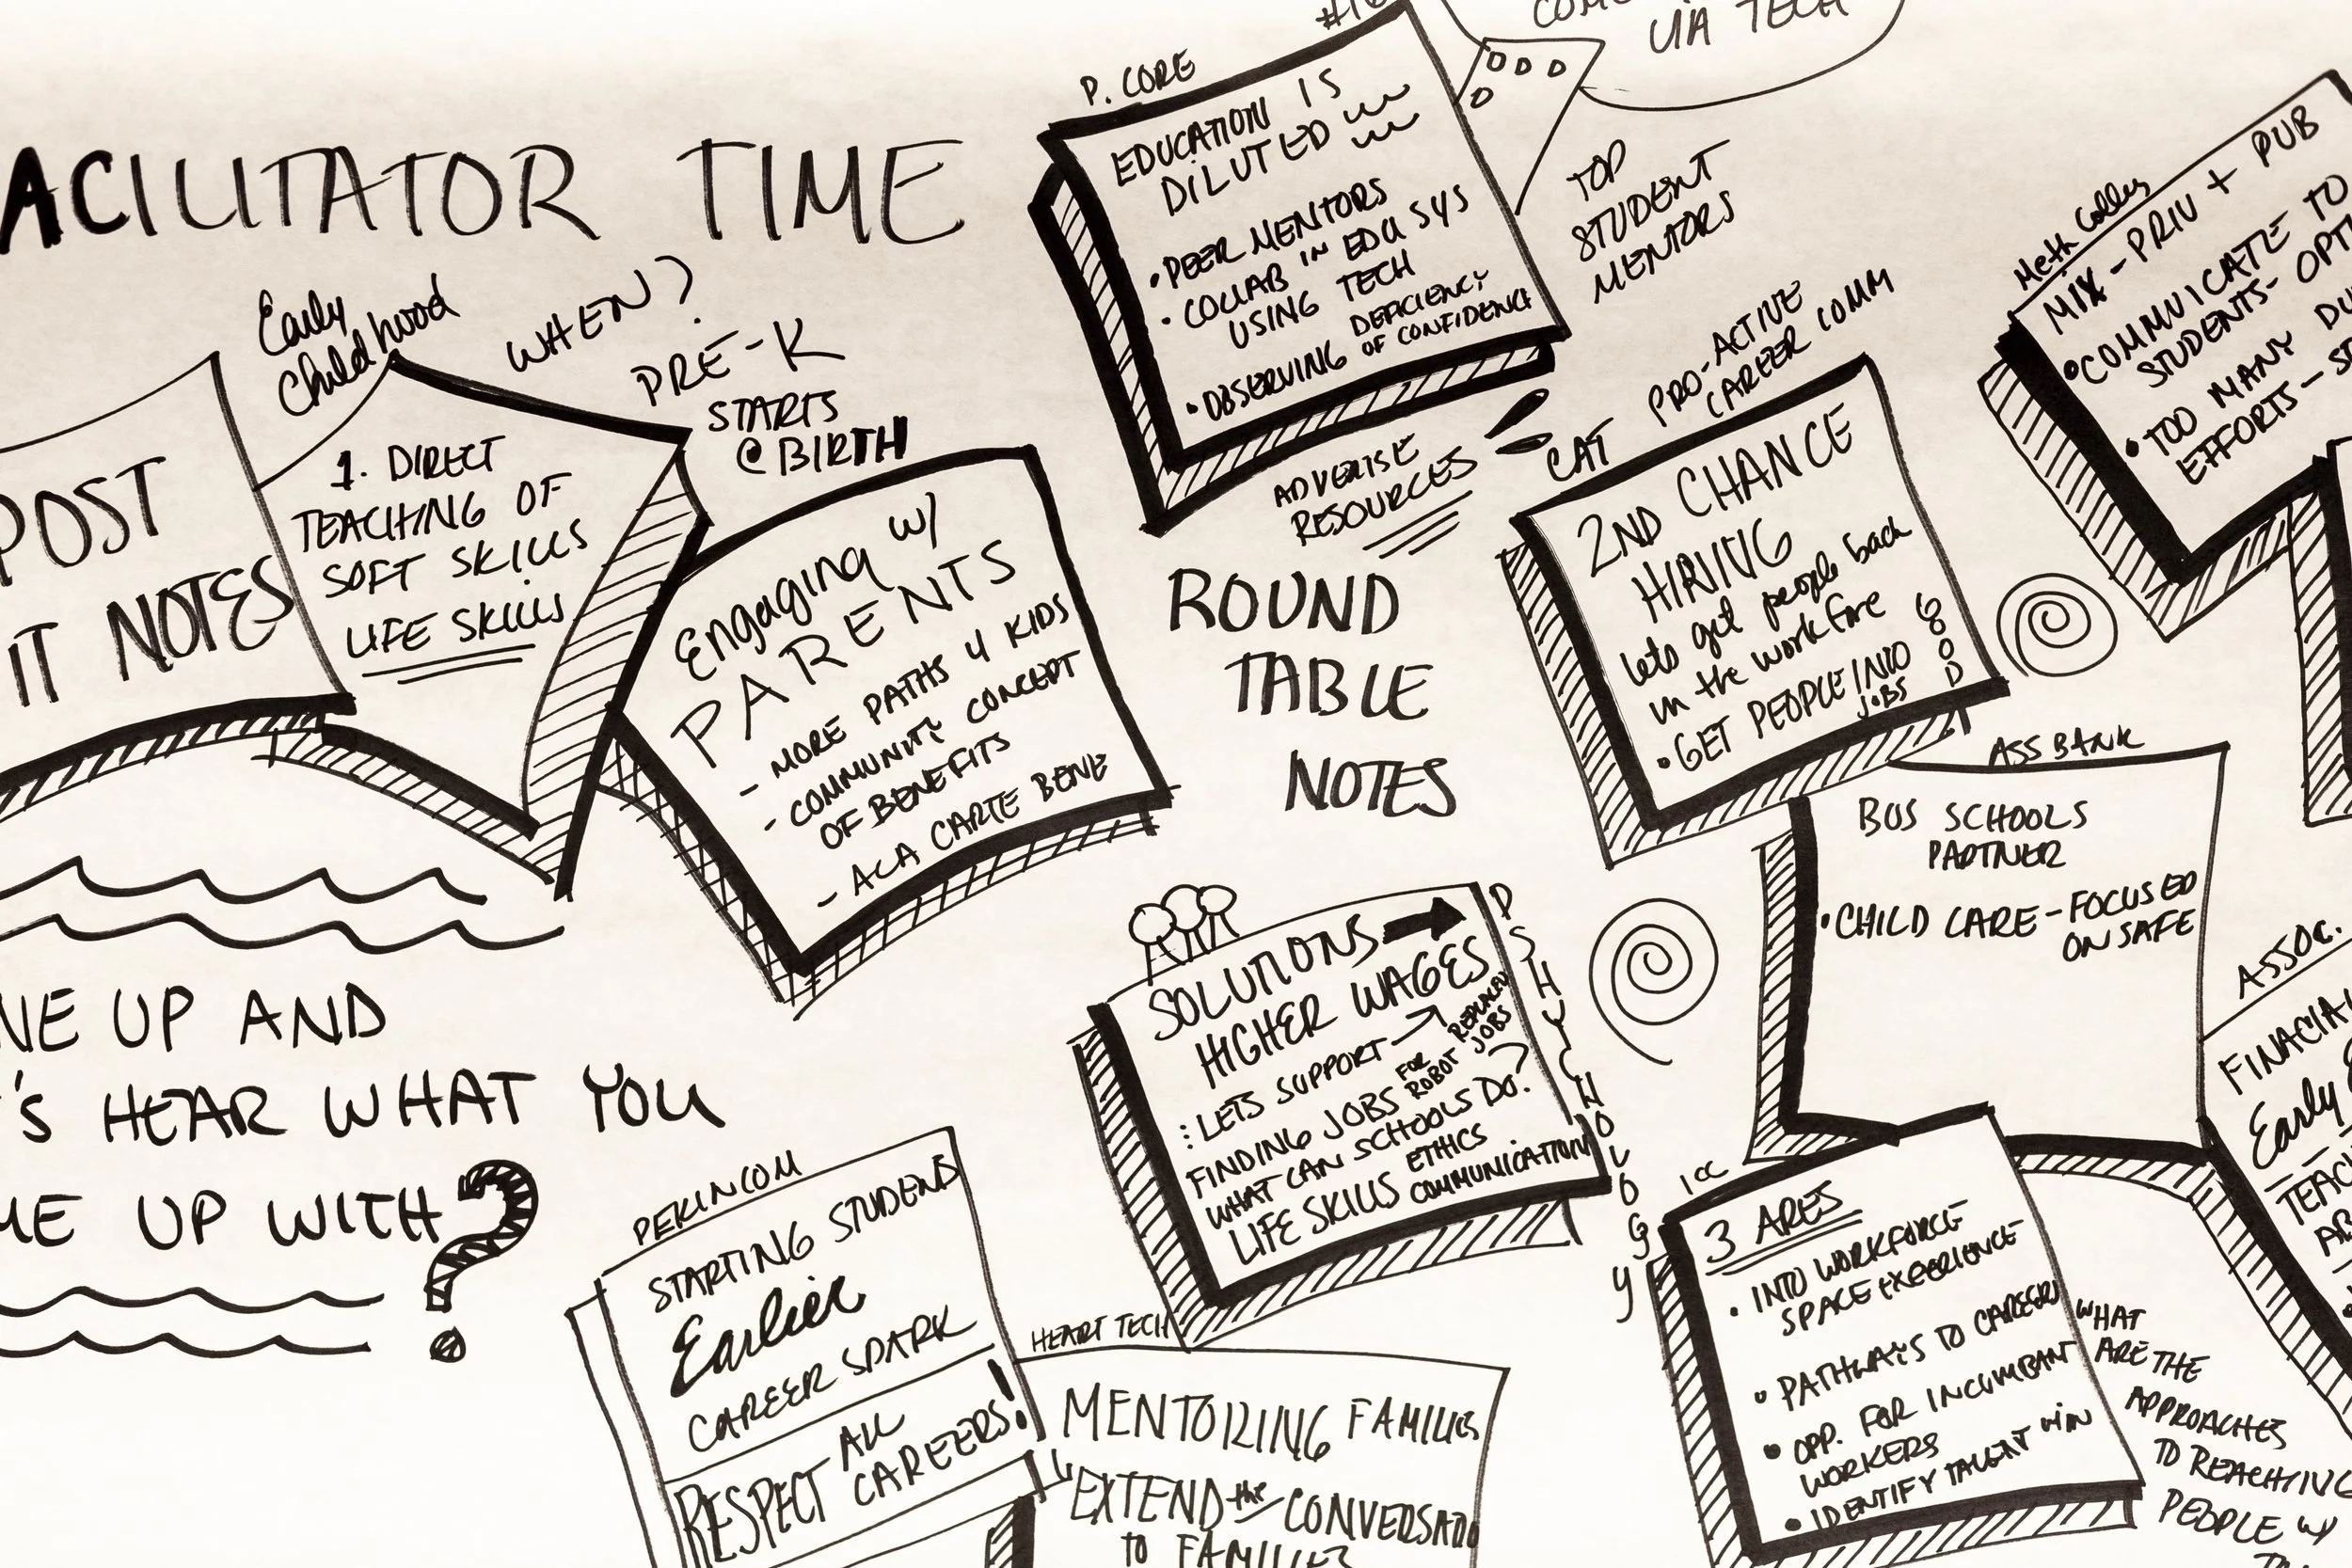 ACILITATOR TIME
Early
Childhood
WHEN?
PRE-K
STARTS
@ BIRTH
POST
IT NOTES
1. DIRECT
TEACHING OF
SOFT SKILLS
LIFE SKILLS
Engaging w/
PARENTS
- MORE PATHS 4 KIDS
- COMMUNITY CONCEPT
OF BENEFITS
- ALA CARTE BENE
NE UP AND
'S HEAR WHAT YOU
ME UP WITH?
P. CORE
EDUCATION IS
DILUTED
• PEER MENTORS
• COLLAB IN EDU SYS
USING TECH
• OBSERVING DEFICIENCY
OF CONFIDENCE
VIA TECH
TOP
STUDENT
MENTORS
ADVERISE
RESOURCES
ROUND
TABLE
NOTES
CAT
PRO-ACTIVE
CAREER COMM
2ND CHANCE
HIRING
lets get people back
in the workforce
• GET PEOPLE INTO
GOOD
JOBS
MIX - PRIV + PUB
• COMMUNICATE TO
STUDENTS - OPT
• TOO MANY DU
EFFORTS - S
ASS BANK
BUS SCHOOLS
PARTNER
• CHILD CARE - FOCUSED
ON SAFE
SOLUTIONS
HIGHER WAGES
: LETS SUPPORT
FINDING JOBS FOR
ROBOT JOBS
WHAT CAN SCHOOLS DO?
LIFE SKILLS ETHICS
COMMUNICATION
PSHYCHOLOGY
PEKIN COM
STARTING STUDENTS
Earlier
CAREER SPARK
RESPECT ALL
CAREERS!
HEART TECH
MENTORING FAMILIES
EXTEND the CONVERSATIO
TO FAMILIES
ICC
3 ARES
• INTO WORKFORCE
SPACE EXPERIENCE
• PATHWAYS TO CAREERS
• OPP. FOR INCUMBANT
WORKERS
• IDENTIFY TALENT w/in
WHAT
ARE THE
APPROACHES
TO REACHING
PEOPLE w/
ASSOC.
FINACIA
Early
TEAC